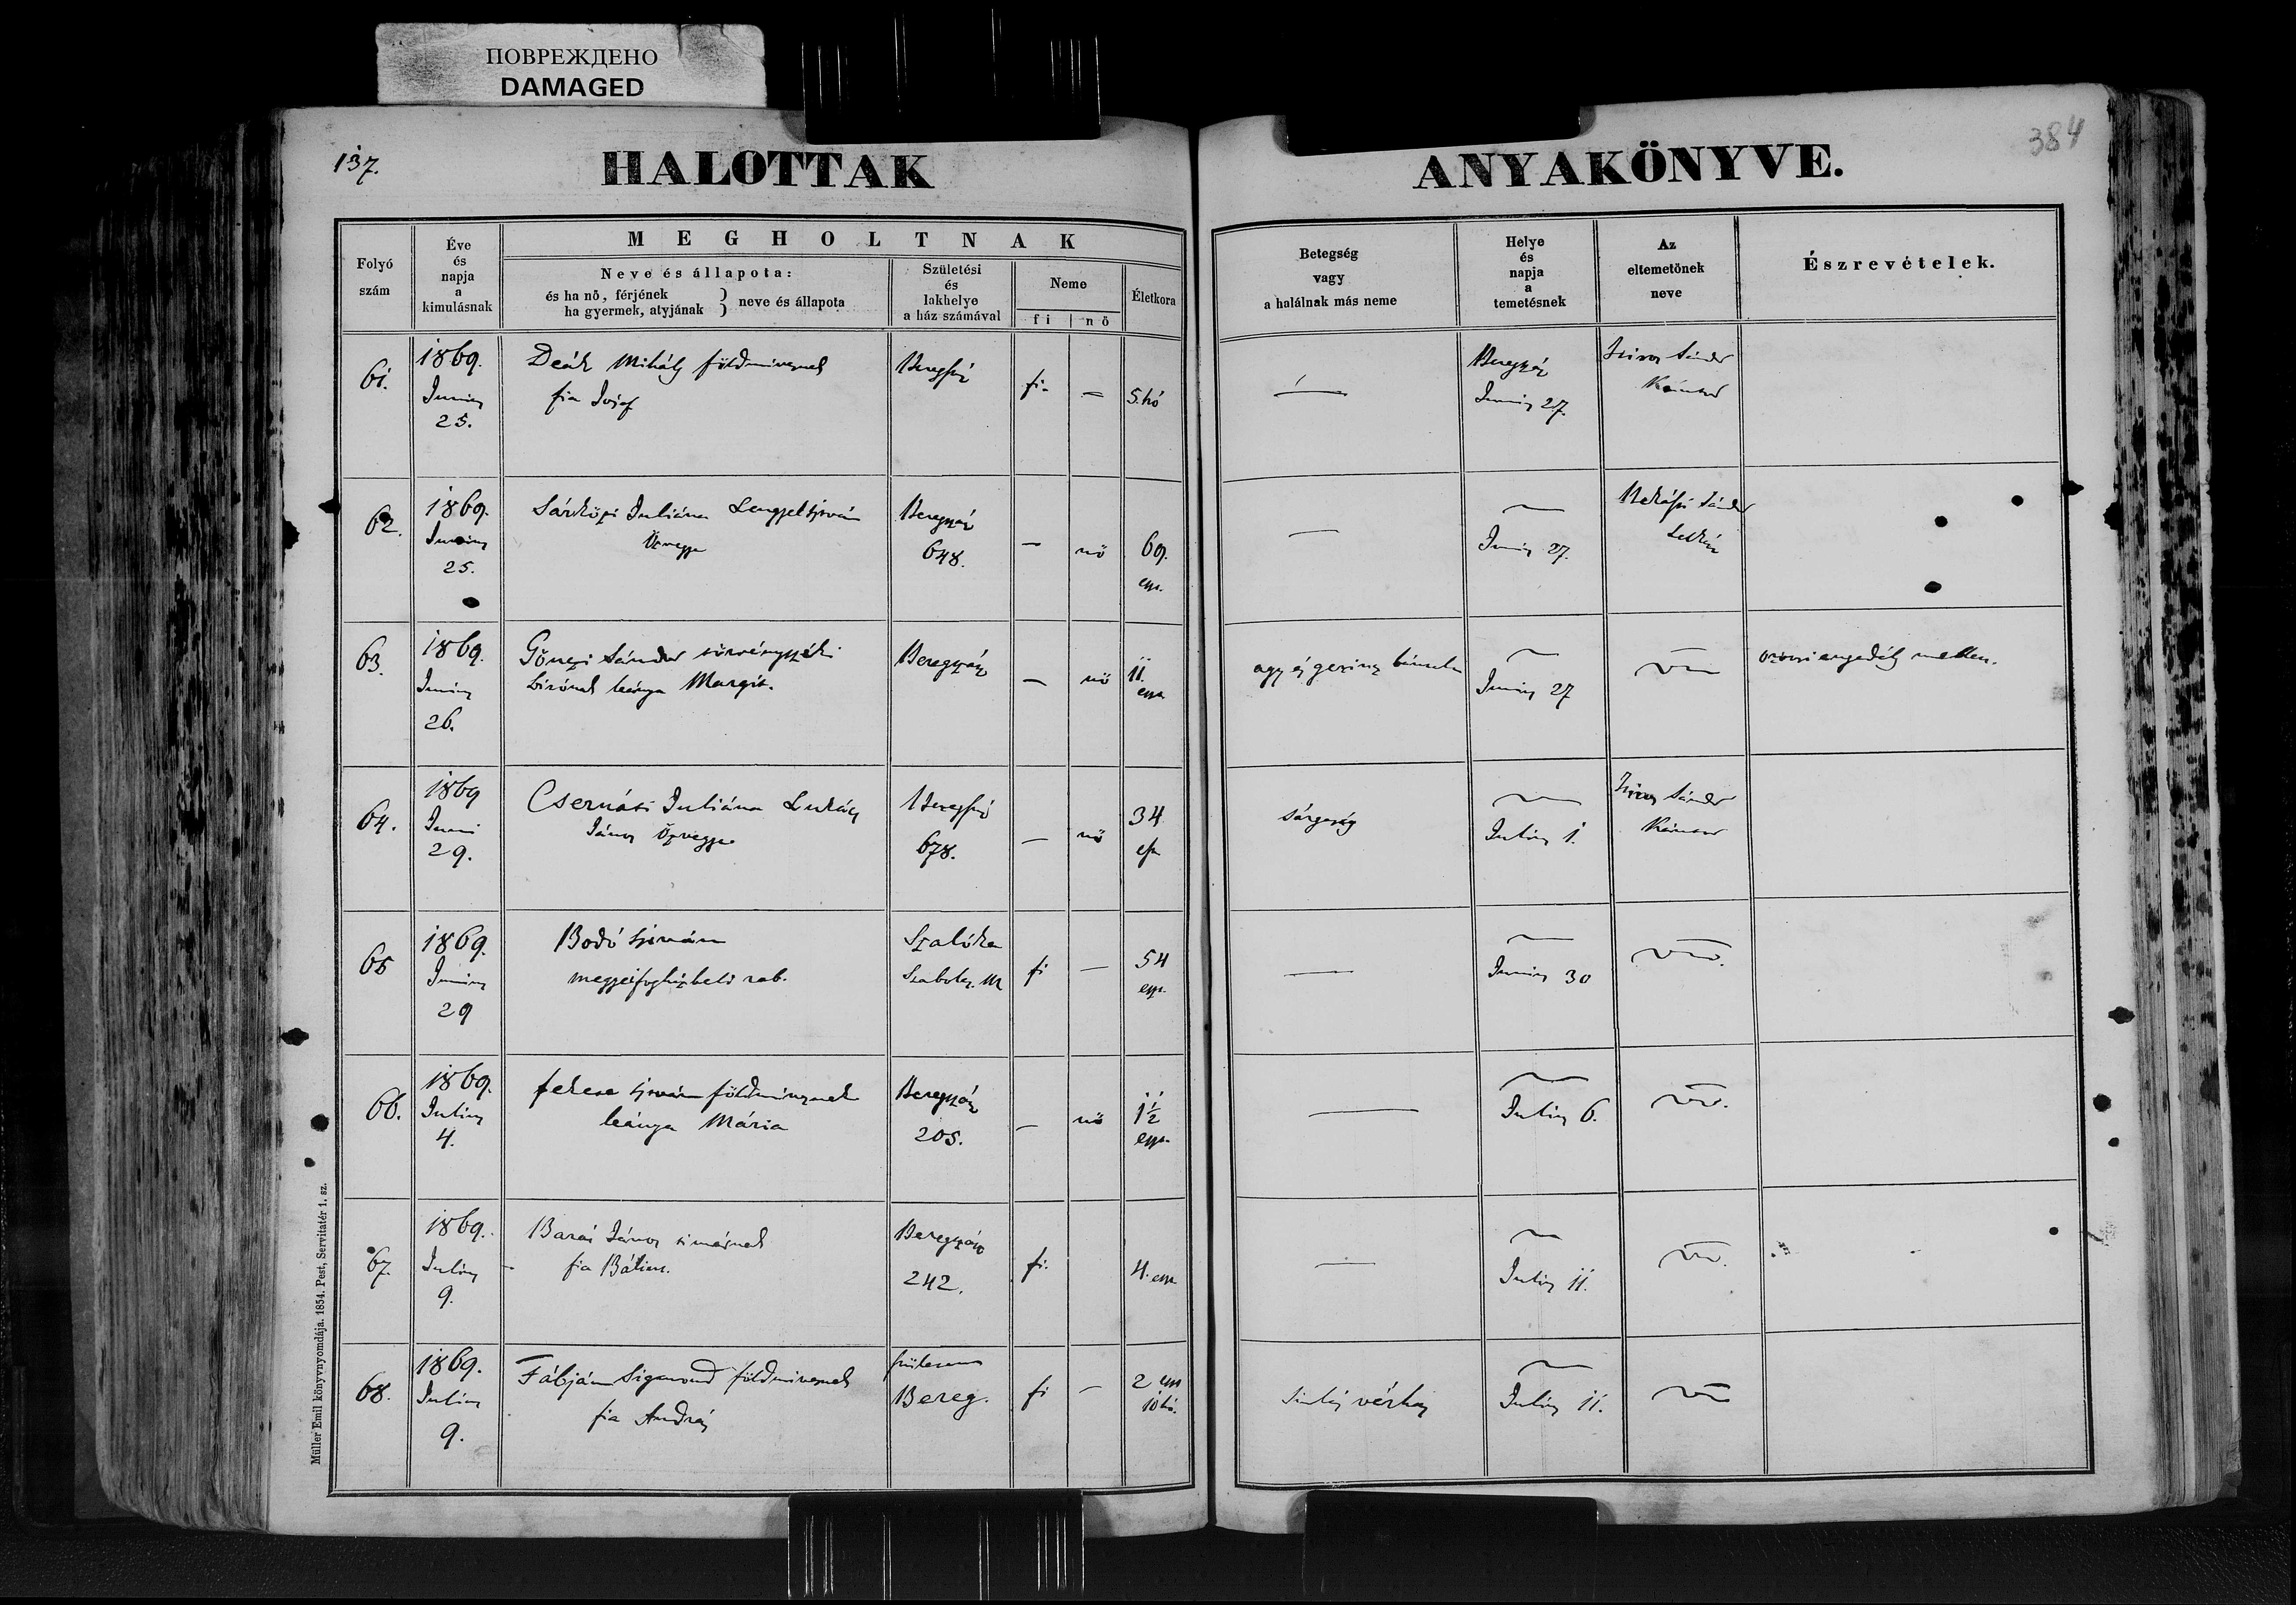 ПОВРЕЖДЕНО
DAMAGED
137.
HALOTTAK
ANYAKÖNYVE.
384
Folyó szám
Éve és napja a kimulásnak
MEGHOLTNAK
Neve és állapota:
és ha nő, férjének
ha gyermek, atyjának } neve és állapota
Születési és lakhelye a ház számával
Neme
fi | nő
Életkora
Betegség vagy a halálnak más neme
Helye és napja a temetésnek
Az eltemetőnek neve
Észrevételek.
61.
1869.
Junius
25.
Deák Mihály földmivesnek
fia Josef
Beregszász
fi.
—
5. hó
—
Beregszász
Junius 27.
Sándor
62.
1869.
Junius
25.
Sárközi Juliána Lengyel István
özvegye
Beregszász
648.
—
nő
69.
év.
—
Junius 27.
Sándor
63.
1869.
Junius
26.
Gönczi Sándor törvényszéki
birónak leánya Margit.
Beregszász
—
nő
11.
agy és gerincz
Junius 27
orvosi engedély mellett.
64.
1869
Juni
29.
Csernáti Juliána Lukács
János özvegye
Beregszász
678.
—
nő
34
sárgaság
Julius 1.
Sándor
65
1869.
Junius
29
Bodó István
megyei fogházbeli rab.
Szalóka
Szabolcs. M
fi
—
54
—
Junius 30
66.
1869.
Julius
4.
Fekete István földmivesnek
leánya Mária
Beregszász
205.
—
nő
1½
—
Julius 6.
67.
1869.
Julius
9.
János
fia Bálint.
Beregszász
242.
fi.
4.
—
Julius 11.
68.
1869.
Julius
9.
Fábján Sigmond földmivesnek
fia András
Bereg.
fi
—
2
10 hó.
vérhas
Julius 11.
Müller Emil könyvnyomdája. 1854. Pest, Servitatér 1. sz.